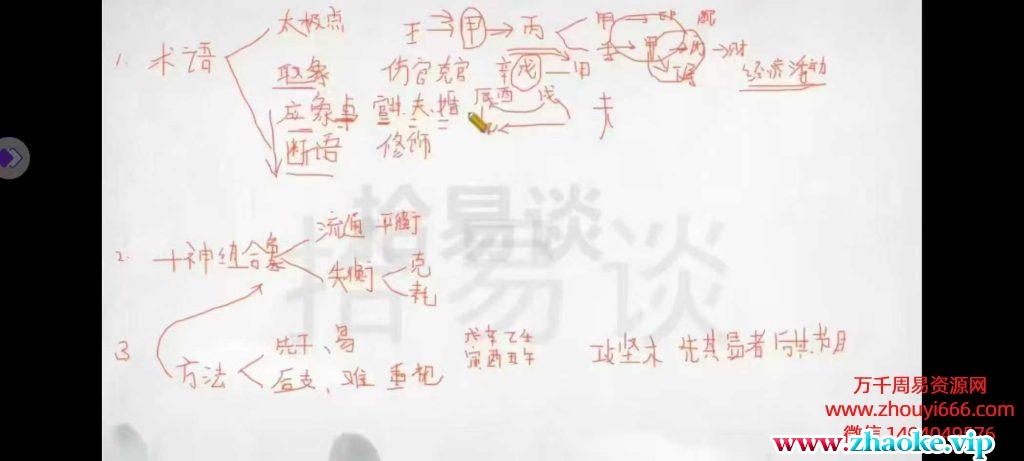 太极点 壬 甲 丙 甲
1. 术语
取象 伤官克官 辛 戊 经济活动
应象点 官非.夫.婚 辰酉 戌 夫
断语 修饰
拾易谈
流通 平衡
2. 十神组合象
失衡 克
耗
3
先干、易 戊辛乙午
方法 寅酉丑午 攻坚木 先其易者 后其节目
后支、难 重视
万千周易资源网
www.zhouyi666.com
微信
www.zhaoke.vip